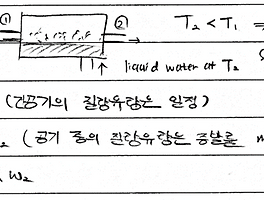 ① ② T₂ < T₁ ⇒
liquid water at T₂
(건공기의 질량유량은 일정)
(공기 중의 질량유량은 증발률
ω₂